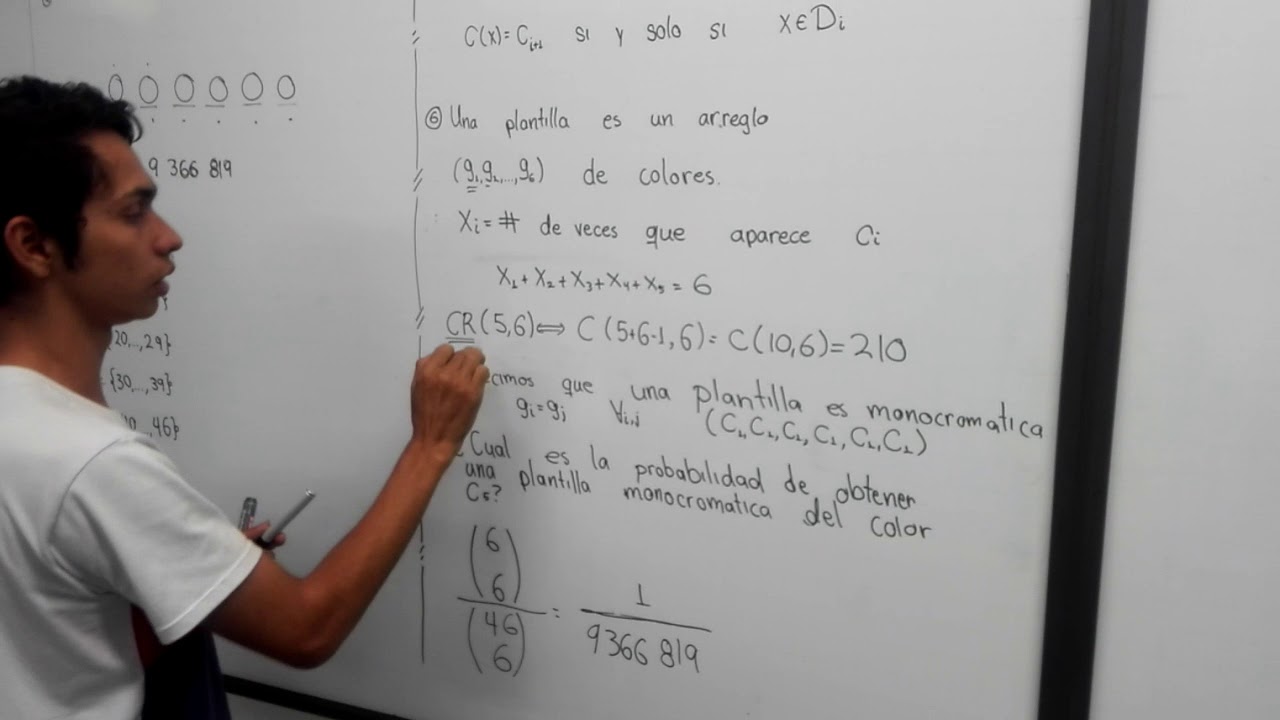 9 366 819
20,..,29}
{30,..,39}
,46}
C(x)= Ci+1 si y solo si x∈Di
⑥ Una plantilla es un arreglo
(g1,g2,...,g6) de colores.
Xi = # de veces que aparece Ci
X1+X2+X3+X4+X5 = 6
CR(5,6)⟺ C(5+6-1,6)= C(10,6)=210
que una plantilla es monocromatica
gi=gj ∀i,j (C1,C1,C1,C1,C1,C1)
¿Cual es la probabilidad de obtener
una plantilla monocromatica del color
C5?
(6 6)
(46 6)
= 1
9366 819